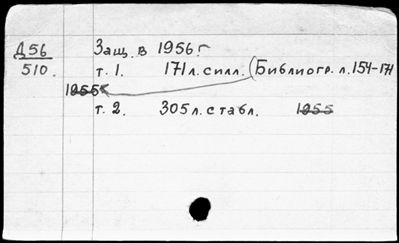 Д56
510.
Защ. в 1956 г
т. 1. 171 л. с илл. (Библиогр. л. 154-171
1955
т. 2. 305 л. с табл. 1955